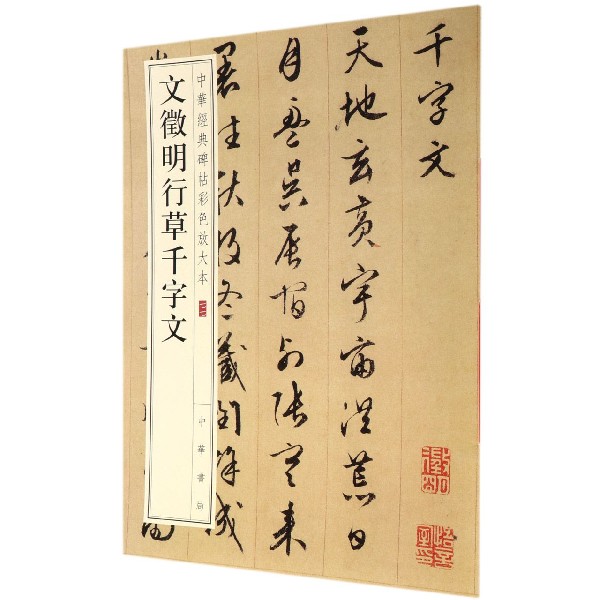 千字文
天地玄黄宇宙洪荒日
月盈昃辰宿列張寒来
暑往秋收冬藏閏餘成
中華經典碑帖彩色放大本
文徵明行草千字文
中華書局